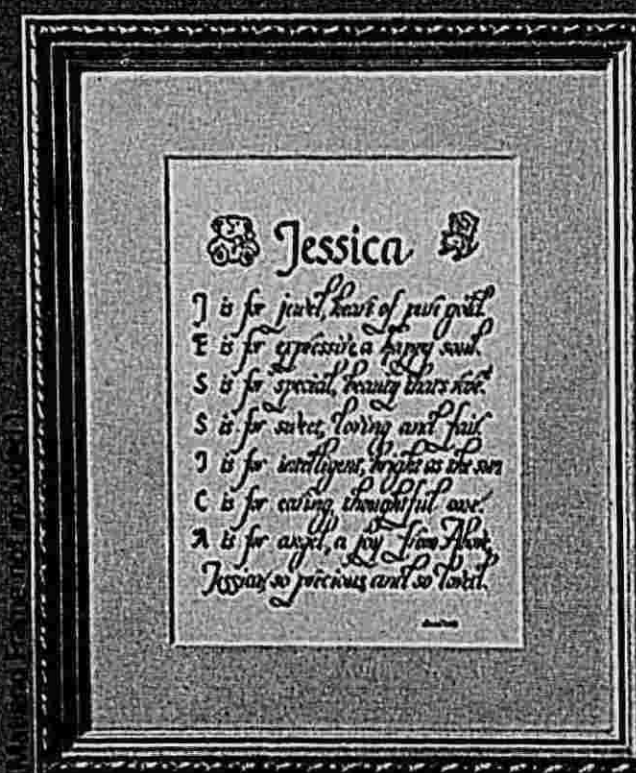 Jessica
J is for jewel, heart of pure gold.
E is for expressive, a happy soul.
S is for special, beauty that's rare.
S is for sweet, loving and fair.
I is for intelligent, bright as the sun
C is for caring, thoughtful one.
A is for angel, a joy from Above,
Jessica, so precious and so loved.